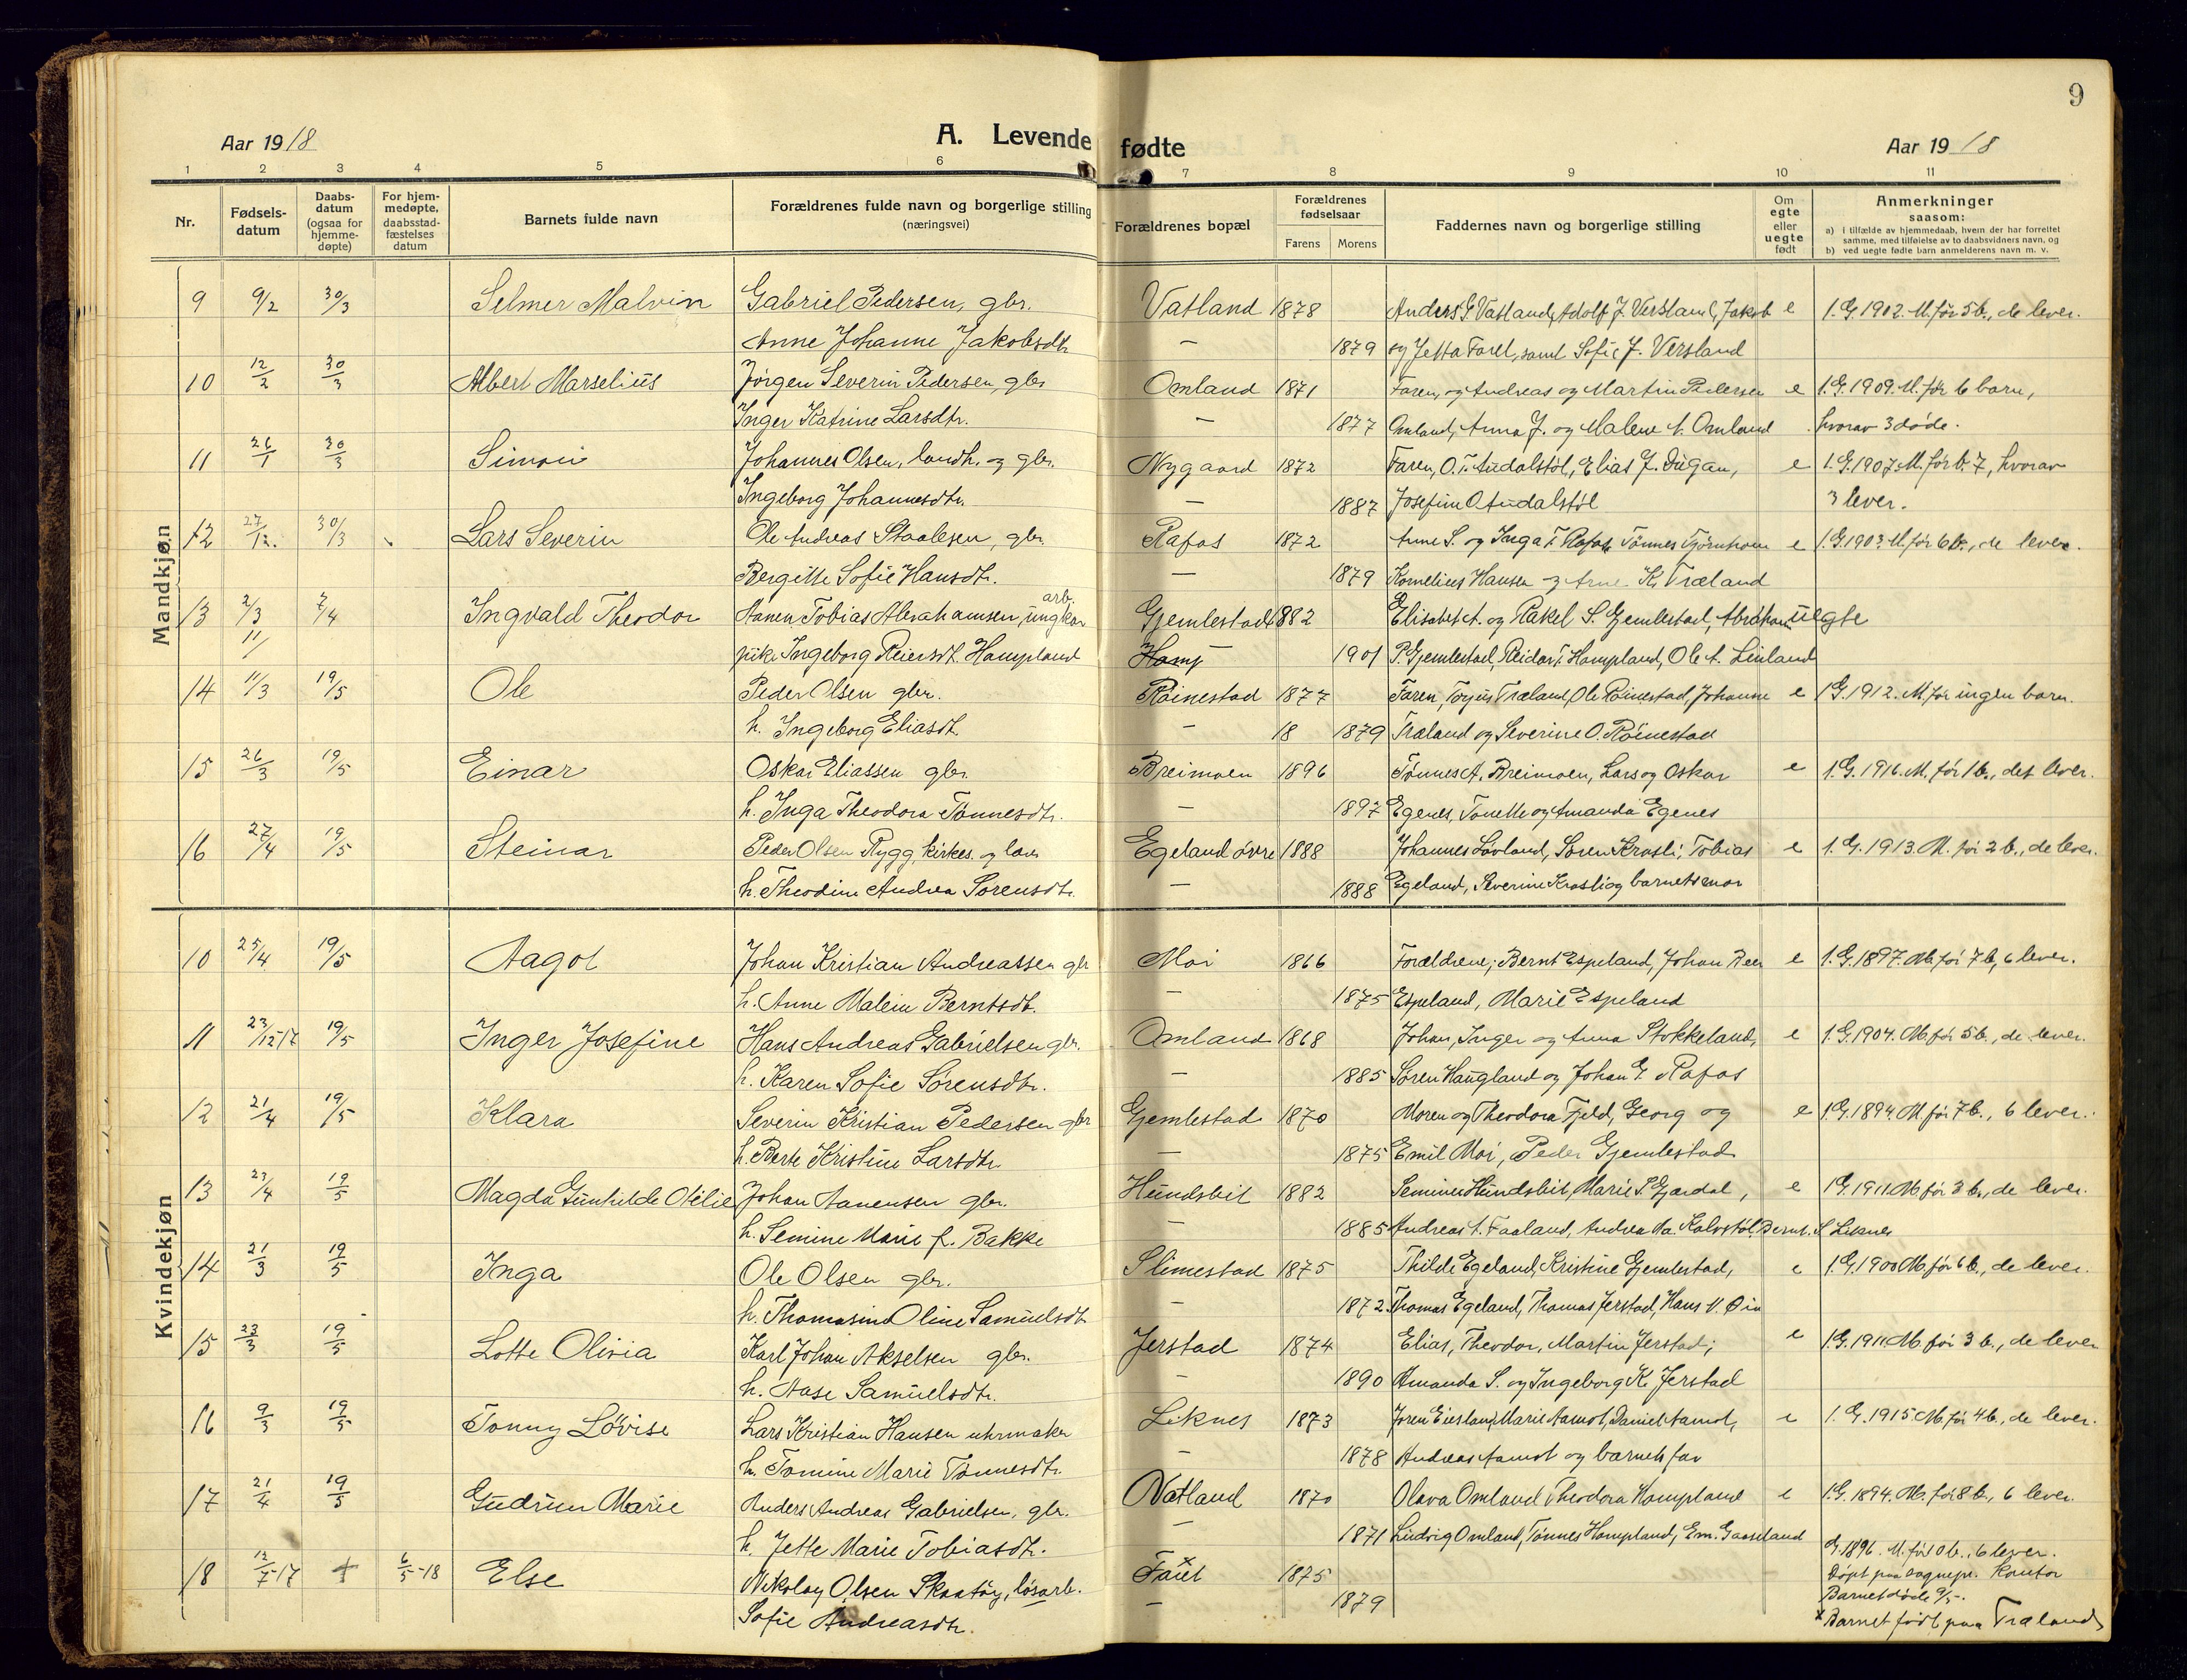 9
Aar 1918 A. Levende fødte Aar 1918
1 2 3 4 5 6 7 8 9 10 11
Nr. Fødsels-datum Daabs-datum (ogsaa for hjemme-døpte) For hjem-medøpte, daabsstad-fæstelses datum Barnets fulde navn Forældrenes fulde navn og borgerlige stilling (næringsvei) Forældrenes bopæl Forældrenes fødselsaar Farens Morens Faddernes navn og borgerlige stilling Om egte eller uegte født Anmerkninger saasom:
a) i tilfælde av hjemmedaab, hvem der har forrettet samme, med tilføielse av to daabsvidners navn, og
b) ved uegte fødte barn anmelderens navn m. v.
Mandkjøn
9 9/2 30/3 Selmer Malvin Gabriel Pedersen, gbr. Vatland 1878 Anders G. Vatland, Adolf J. Versland, Jakob e 1. G. 1902. M. før 5 b., de lever.
Anne Johanne Jakobsdtr. — 1879 og Jetta Faret, samt Sofie J. Versland
10 12/2 30/3 Albert Marselius Jørgen Severin Pedersen, gbr. Omland 1871 Faren, og Andreas og Martin Pedersen e 1. G. 1909. M. før 6 barn,
Inger Katrine Larsdtr. — 1877 Omland, Anna J. og Malene A. Omland hvorav 3 døde.
11 26/1 30/3 Simon Johannes Olsen, landh. og gbr. Nygaard 1872 Faren, O. T. Audalstøl, Elias J. Dugan, e 1. G. 1907. M. før b. 7, hvorav
Ingeborg Johannesdtr. — 1887 Josefine O. Audalstøl 3 lever.
12 27/12. 30/3 Lars Severin Ole Andreas Staalesen, gbr. Rafos 1872 Anne S. og Inga T. Rafos, Tønnes Tjørnhom e 1. G. 1903. M. før 6 b., de lever.
Bergitte Sofie Hansdtr. — 1879 Kornelius Hansen og Arne K. Træland
13 2/3 7/4 Ingvald Theodor Aanen Tobias Abrahamsen, ungkar arb. Gjemlestad 1882 Elisabet A. og Rakel S. Gjemlestad, Abraham uegte
11/ pike Ingeborg Reiersdt. Hampland Hamp 1901 P. Gjemlestad, Reidar T. Hampland, Ole A. Linland
14 11/3 19/5 Ole Peder Olsen gbr. Røinestad 1877 Faren, Torjus Træland, Ole Røinestad, Johanne e 1 G. 1912. M. før ingen barn.
h. Ingeborg Eliasdt. — 18 1879 Træland og Severine O. Røinestad
15 26/3 19/5 Einar Oskar Eliassen gbr. Breimoen 1896 Tønnes A. Breimoen, Lars og Oskar e 1. G. 1916. M. før 1 b., det lever.
h. Inga Theodora Tønnesdtr. — 1897 Egenes, Tonette og Amanda Egenes
16 27/4 19/5 Steinar Peder Olsen Rygg, kirkes. og lær. Egeland øvre 1888 Johannes Løvland, Søren Krosli, Tobias e 1. G. 1913. M. før 2 b., de lever.
h. Theodine Andrea Sørensdtr. — 1888 Egeland, Severine Krosli og barnets mor
Kvindekjøn
10 25/4 19/5 Aagot Johan Kristian Andreassen gbr Moi 1866 Forældrene; Bernt Espeland, Johan Reer e 1. G. 1897. M. før 7 b, 6 lever.
h. Anne Malein Berntsdt. — 1875 Espeland, Marie Espeland
11 23/12 17 19/5 Inger Josefine Hans Andreas Gabrielsen gbr. Omland 1868 Johan, Inger og Anna Stokkeland, e 1. G. 1904. M. før 5 b., de lever.
h. Karen Sofie Sørensdtr. — 1885 Søren Haugland og Johan G. Rafos
12 21/4 19/5 Klara Severin Kristian Pedersen gbr Gjemlestad 1870 Moren og Theodora Fjeld, Georg og e 1. G. 1894 M. før 7 b., 6 lever.
h. Berte Kristine Larsdtr. — 1875 Emil Moi, Peder Gjemlestad
13 23/4 19/5 Magda Gunhilde Otelie Johan Aanensen gbr. Hundsbit 1882 Semine Hundsbit, Marie S. Gjerdal, e 1 G. 1911. M. før 3 b., de lever.
h. Semine Marie f. Bakke — 1885 Andreas A. Faaland, Andrea Aa. Kalvstøl, Bernt. S. Liknes
14 21/3 19/5 Inga Ole Olsen gbr. Slimestad 1875 Thilde Egeland, Kristine Gjemlestad, e 1. G. 1900 M. før 6 b., de lever.
h. Thomasine Oline Samuelsdt. — 1872. Thomas Egeland, Thomas Jerstad, Hans V. Øie
15 23/3 19/5 Lotte Olivia Karl Johan Akselsen gbr. Jerstad 1874 Elias, Theodor, Martin Jerstad; e 1. G. 1911. M. før 3 b., de lever
h. Aase Samuelsdtr. — 1890 Amanda S. og Ingeborg K. Jerstad
16 9/3 19/5 Tonny Lovise Lars Kristian Hansen uhrmaker Liknes 1873 Joren Eiesland, Marie Aamot, Daniel Aamot, e 1. G. 1915 M. før 4 b., de lever.
h. Tomine Marie Tønnesdtr. — 1878 Andreas Aamot og barnets far
17 21/4 19/5 Gudrun Marie Anders Andreas Gabrielsen, gbr. Vatland 1870 Olava Omland, Theodora Hampland e 1. G. 1894. M. før 8 b., 6 lever.
h. Jette Marie Tobiasdtr. — 1871 Ludvig Omland, Tønnes Hampland, Em. Gaaseland
18 12/7-17 6/5-18 Else Nikolay Olsen Skaatøy, løsarb. Faret x 1875 G. 1896. M. før 10 b., 6 lever.
Sofie Andreasdtr. — 1879 Døpt paa sognepr. kontor
Barnet døde 9/5.
x Barnet født paa Træland